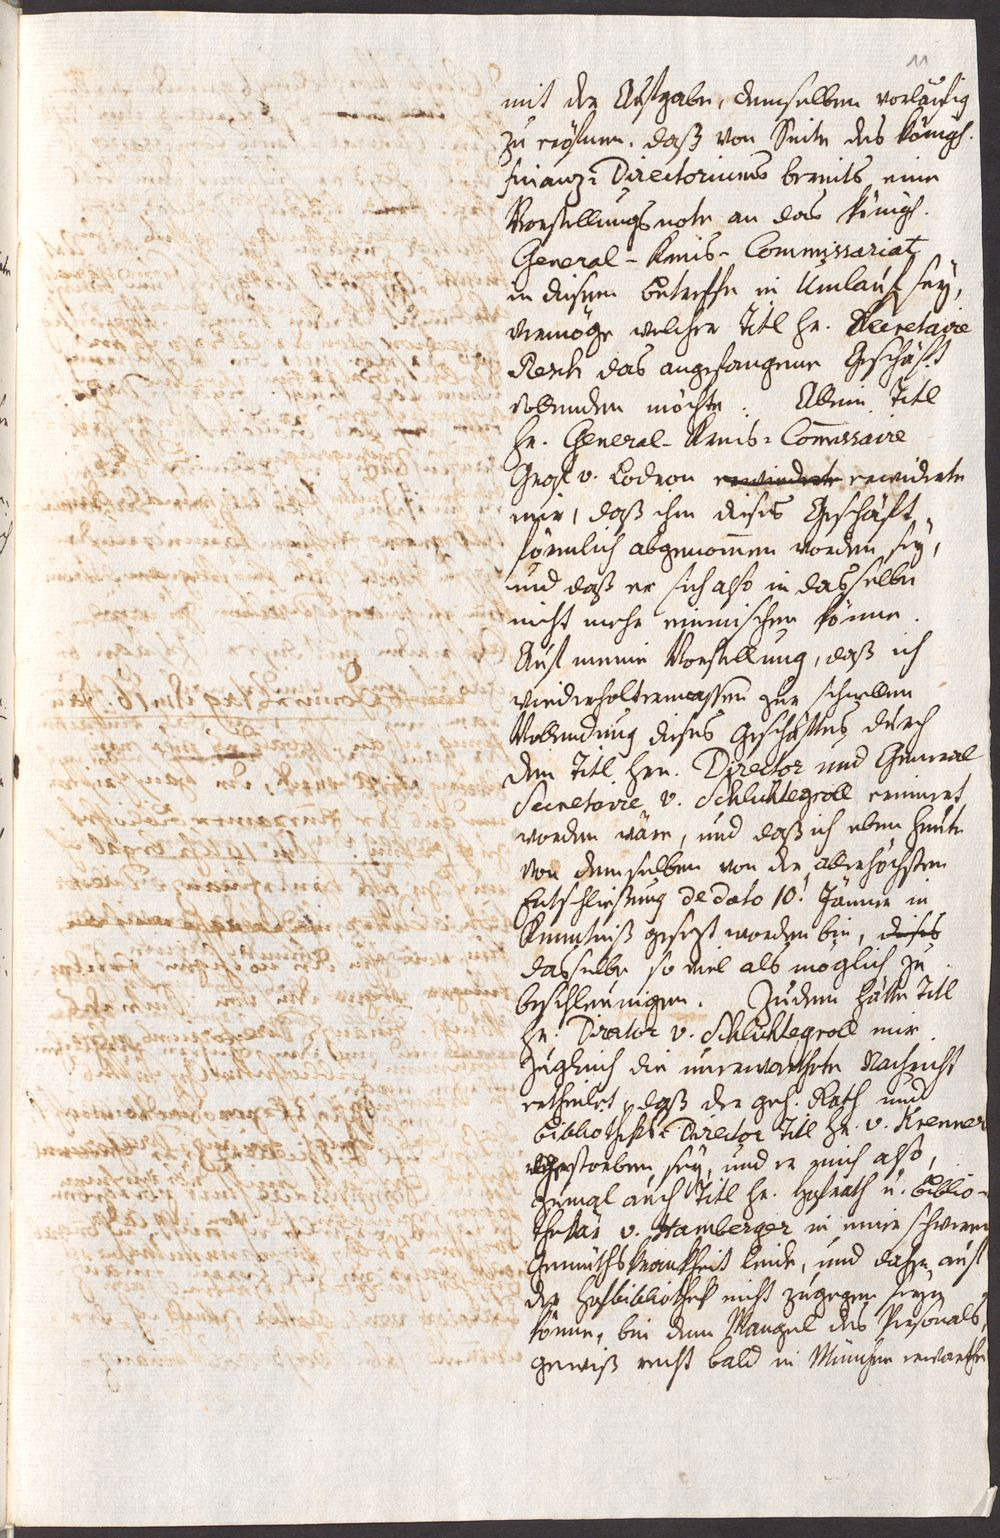 11
mit der Aufgabe, demselben vorläufig
zu eröfnen, daß von Seite des königl.
Finanz-Directoriums bereits eine
Vorstellungsnote an das königl.
General-Kreis-Commissariat
in diesem Betreffe in Umlauf sey,
vermöge welcher Titl Hr. Secretaire
Resch das angefangene Geschäft
vollenden möchte. Allein Titl
Hr. General-Kreis-Com̄issaire
Graf v. Lodron erwiederte erwiderte
mir, daß ihm dieses Geschäft
förmlich abgenom̄en worden sey,
und daß er sich also in dasselbe
nicht mehr einmischen könne.
Auf meine Vorstellung, daß ich
wiederholtermassen zur schnellen
Vollendung dieses Geschäftes durch
den Titl Hrn. Director und General
Secretaire v. Schlichtegroll erinnert
worden wäre, und daß ich eben heute
von demselben von der allerhöchsten
Entschließung de dato 10! Jänner in
Kenntniß gesezt worden bin, dieses
dasselbe so viel als möglich zu
beschleunigen. Zudem hätte Titl
Hr. Director v. Schlichtegroll mir
zugleich die unerwartete Nachricht
ertheilet, daß der geh. Rath und
Bibliotheks-Director Titl Hr. v. Krenner
gestorben sey, und er mich also,
zumal auch Titl Hr. Hofrath u. Biblio-
thekar v. Hamberger in einer schweren
Gemüthskrankheit leide, und daher auf
der Hofbibliothek nicht zugegen seyn
könne, bei dem Mangel des Personals,
gewiß recht bald in München erwarte